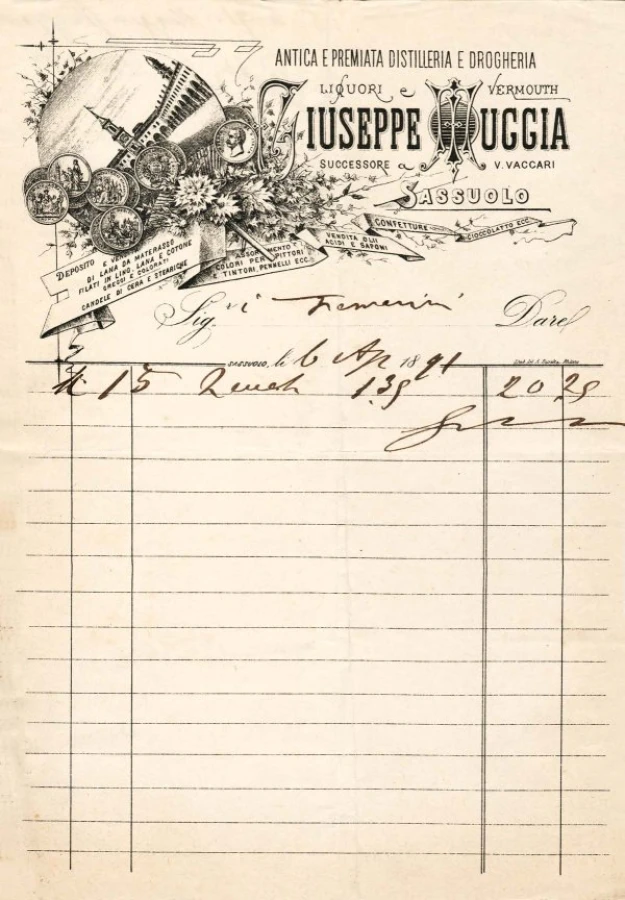 ANTICA E PREMIATA DISTILLERIA E DROGHERIA
LIQUORI e VERMOUTH
GIUSEPPE MUGGIA
SUCCESSORE a V. VACCARI
SASSUOLO
CONFETTURE CIOCCOLATTO ECC.
VENDITA OLII
ACIDI E SAPONI
ASSORTIMENTO
COLORI PER PITTORI
TINTORI, PENNELLI ECC.
DEPOSITO E
DI LANA DA MATERASSO
FILATI IN LINO, LANA E COTONE
GREGGI E COLORATI
CANDELE DI CERA E STEARICHE
Sig. i Dare
SASSUOLO, le 6 Ap 1891
K 15 1.35 20 25